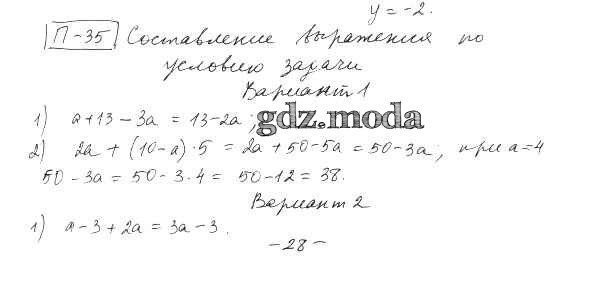 y = -2.
П-35 Составление выражения по
условию задачи
Вариант 1
1) a+13-3a = 13-2a; gdz.moda
2) 2a + (10-a)·5 = 2a+50-5a = 50-3a; при a=4
50-3a = 50-3·4 = 50-12 = 38.
Вариант 2
1) a-3+2a = 3a-3.
-28-